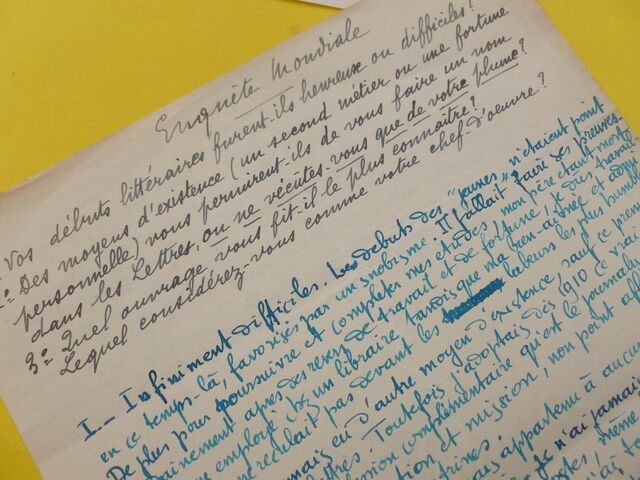 Enquête Mondiale
Vos débuts littéraires furent-ils heureux ou difficiles?
2º Des moyens d'existence (un second métier ou une fortune
personnelle) vous permirent-ils de vous faire un nom
dans les Lettres, ou ne vécûtes-vous que de votre plume?
3º Quel ouvrage vous fit-il le plus connaître?
Lequel considérez-vous comme votre chef-d'oeuvre?
I.- Infiniment difficiles. Les débuts des "jeunes" n'étaient point
en ce temps-là, favorisés par un snobisme. Il fallait faire ses preuves.
De plus pour poursuivre et compléter mes études, mon père étant mort
après des revers de fortune, je dus travailler
employé chez un libraire tandis que ma bien-aînée et
reculait pas devant les labeurs les plus humbles
eu d'autre moyen d'existence, sauf ce
lettres. Toutefois j'adoptais dès 1910 ce vrai
complémentaire qu'est le journalisme
et mission, non point
appartenu à aucun
je n'ai jamais
même
j'ai